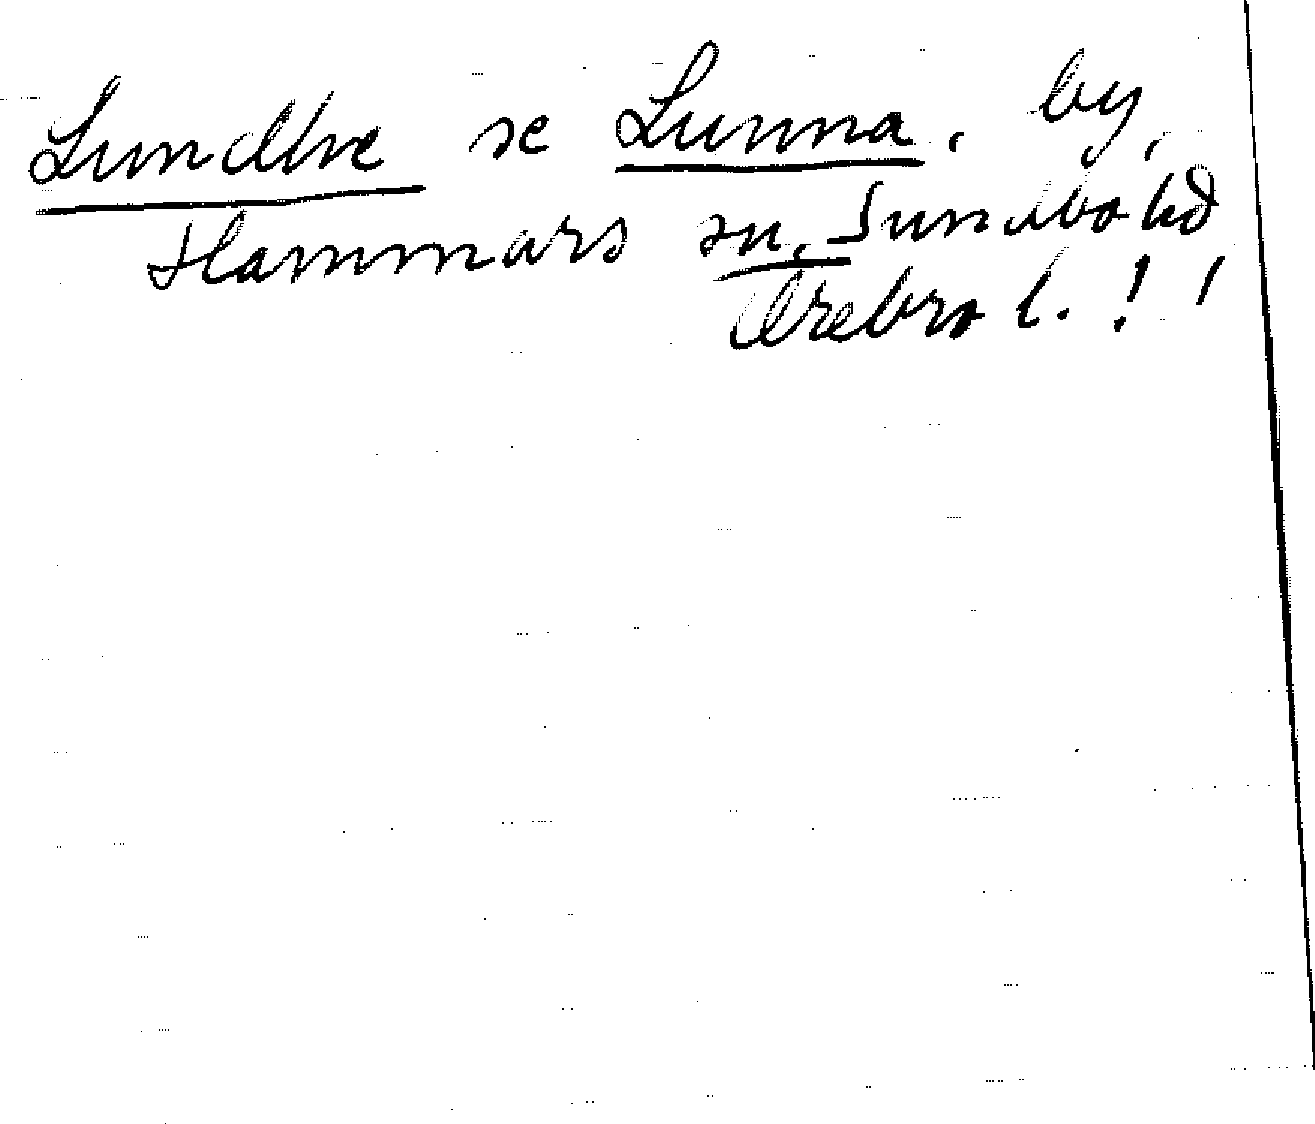 Lundbre se Lunna, by,
Hammars sn, Sundbo hd
Örebro l. !!